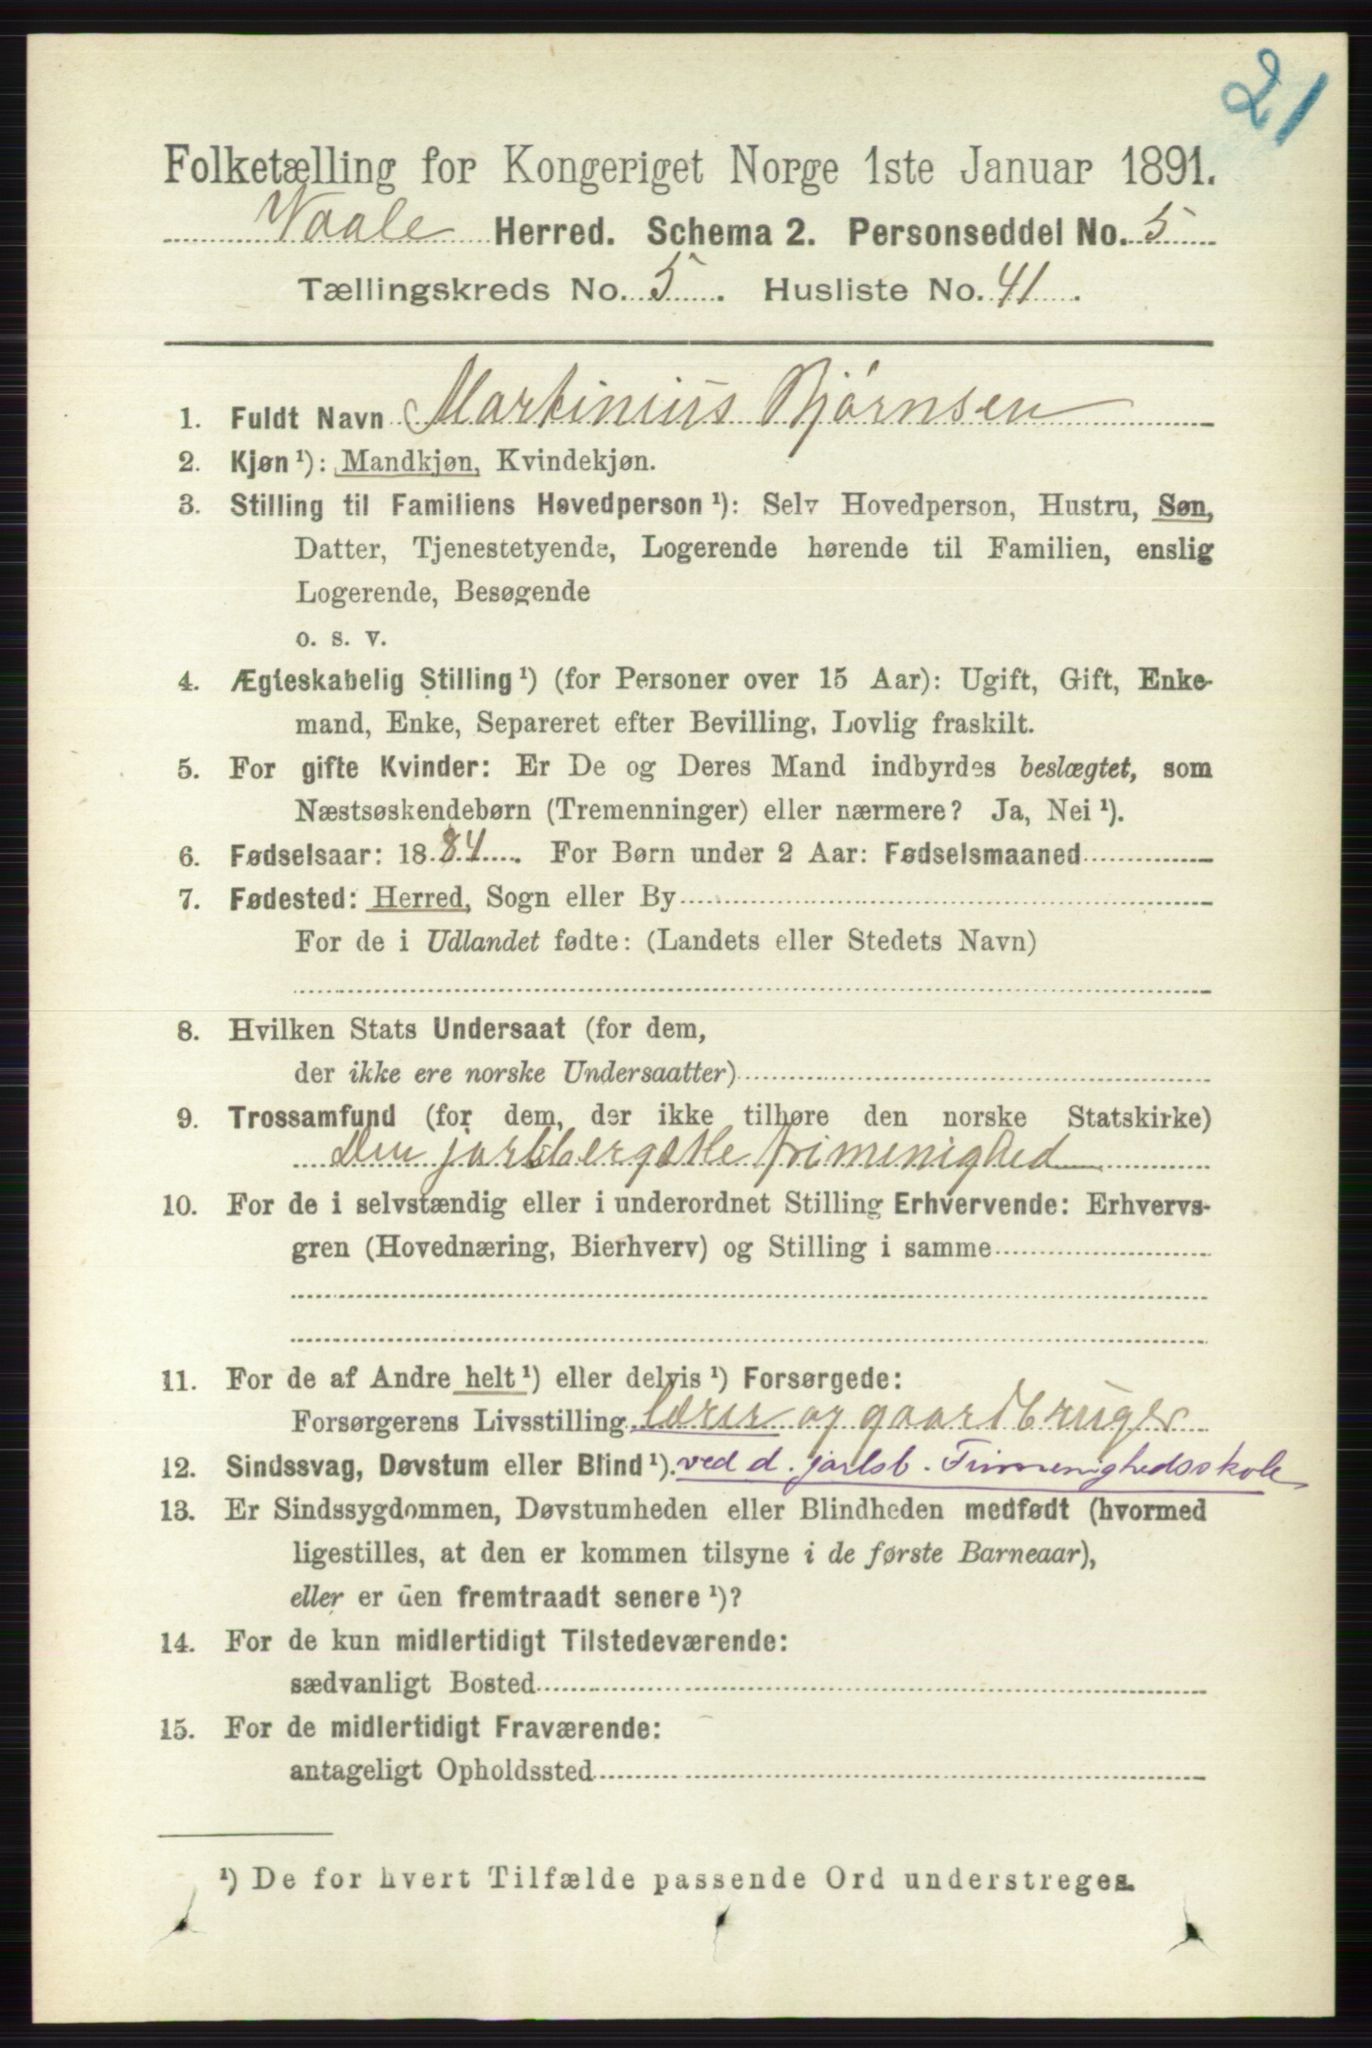 21
Folketælling for Kongeriget Norge 1ste Januar 1891.
Vaale Herred. Schema 2. Personseddel No. 5
Tællingskreds No. 5. Husliste No. 41.
1. Fuldt Navn Martinius Bjørnsen
2. Kjøn¹): Mandkjøn, Kvindekjøn.
3. Stilling til Familiens Hovedperson¹): Selv Hovedperson, Hustru, Søn,
Datter, Tjenestetyende, Logerende hørende til Familien, enslig
Logerende, Besøgende
o. s. v.
4. Ægteskabelig Stilling¹) (for Personer over 15 Aar): Ugift, Gift, Enke-
mand, Enke, Separeret efter Bevilling, Lovlig fraskilt.
5. For gifte Kvinder: Er De og Deres Mand indbyrdes beslægtet, som
Næstsøskendebørn (Tremenninger) eller nærmere? Ja, Nei¹).
6. Fødselsaar: 1884. For Børn under 2 Aar: Fødselsmaaned
7. Fødested: Herred, Sogn eller By
For de i Udlandet fødte: (Landets eller Stedets Navn)
8. Hvilken Stats Undersaat (for dem,
der ikke ere norske Undersaatter)
9. Trossamfund (for dem, der ikke tilhøre den norske Statskirke)
Den jarlsbergske frimenighed
10. For de i selvstændig eller i underordnet Stilling Erhvervende: Erhvervs-
gren (Hovednæring, Bierhverv) og Stilling i samme
11. For de af Andre helt¹) eller delvis¹) Forsørgede:
Forsørgerens Livsstilling lærer og gaardbruger
12. Sindssvag, Døvstum eller Blind¹). ved d. jarlsb. Frimenighedsskole
13. Er Sindssygdommen, Døvstumheden eller Blindheden medfødt (hvormed
ligestilles, at den er kommen tilsyne i de første Barneaar),
eller er den fremtraadt senere¹)?
14. For de kun midlertidigt Tilstedeværende:
sædvanligt Bosted
15. For de midlertidigt Fraværende:
antageligt Opholdssted
¹) De for hvert Tilfælde passende Ord understreges.